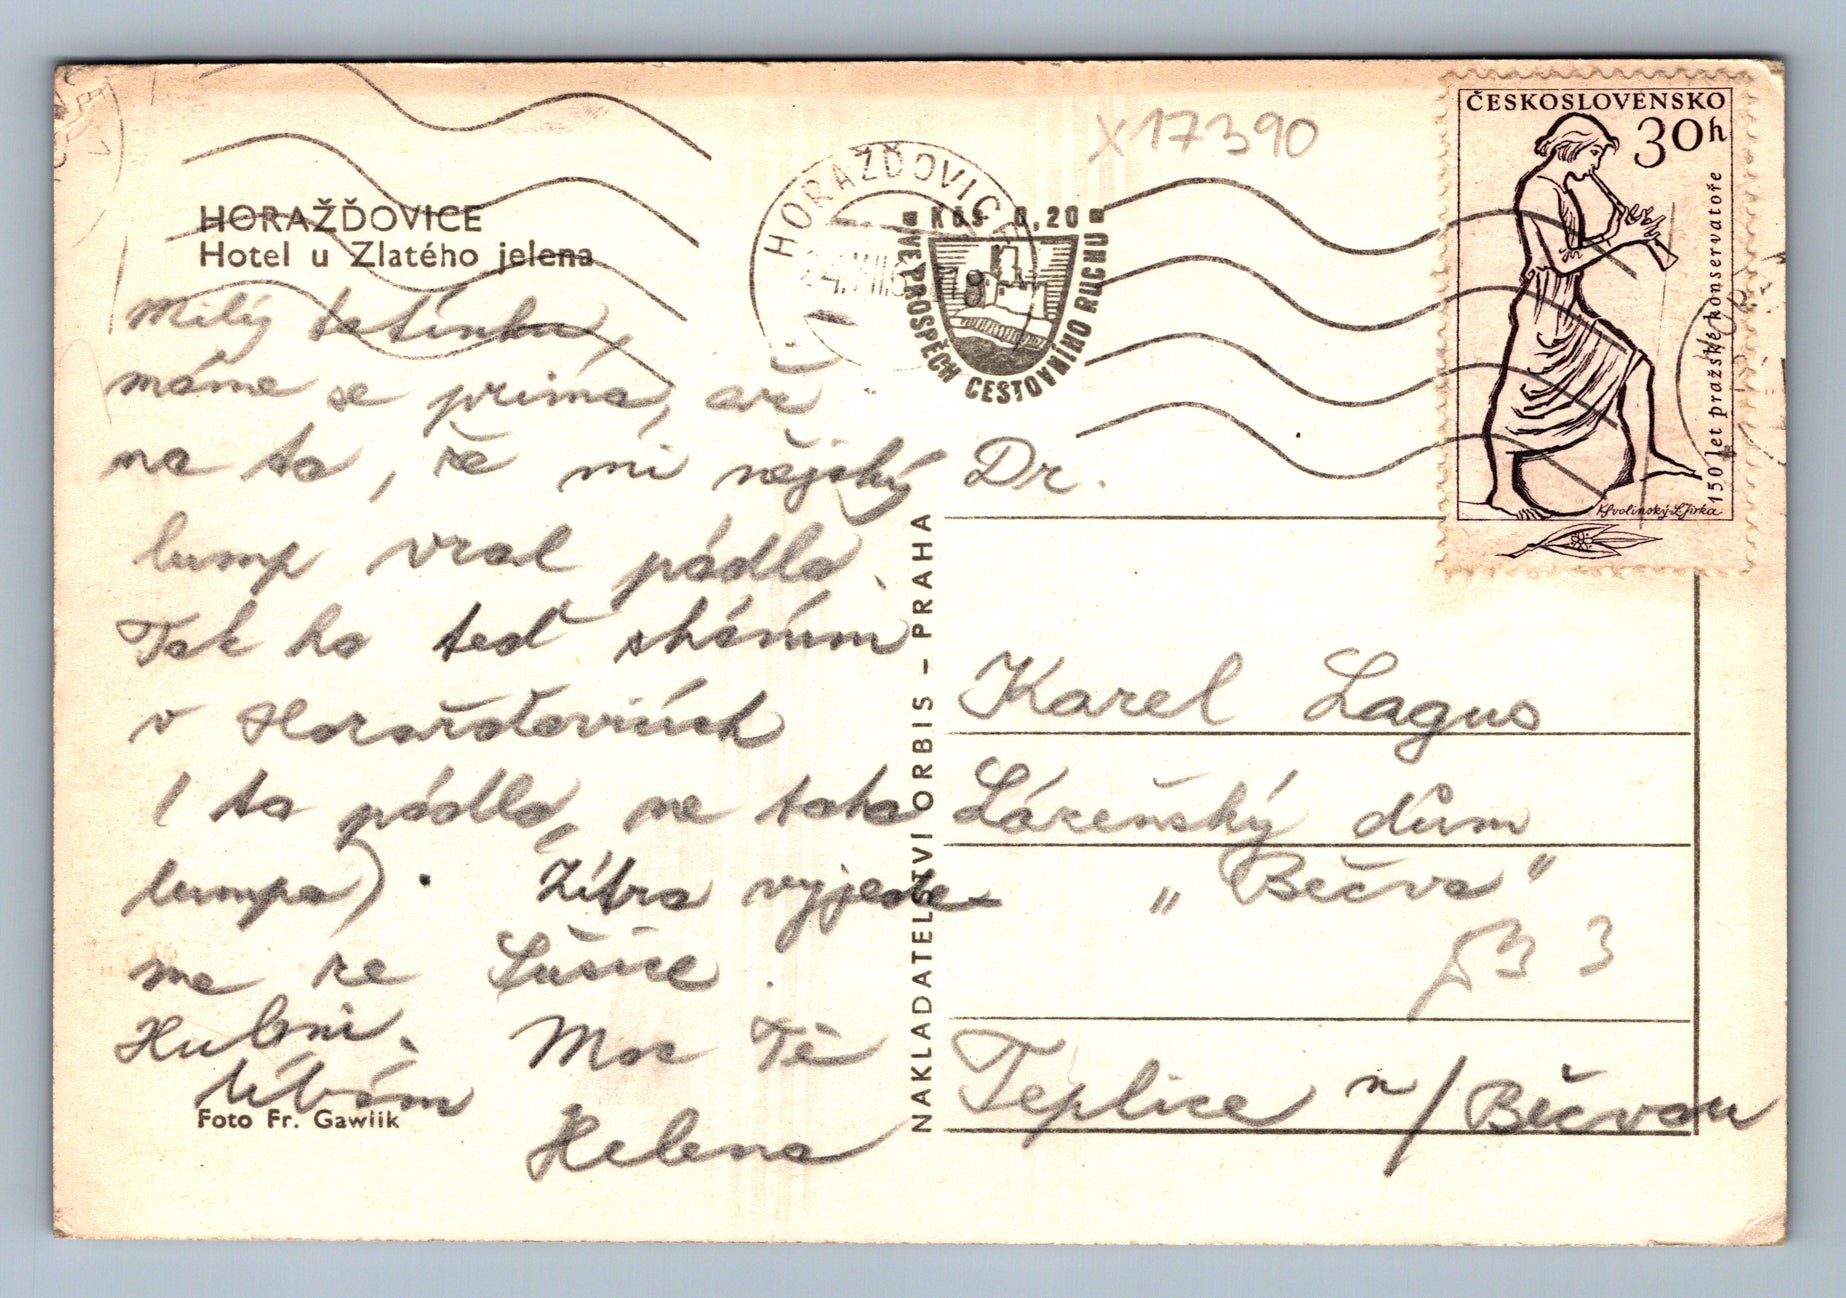 HORAŽĎOVICE
Hotel u Zlatého jelena
Milý tatínku,
máme se prima, až
na to, že mi nějaký
lump vzal pádlo.
Tak ho teď sháním
v Horažďovicích
(to pádlo, ne toho
lumpa). Zítra vyjede-
me ze Sušice.
Moc Tě
líbám
Helena
Foto Fr. Gawlik
NAKLADATELSTVÍ ORBIS - PRAHA
X17390
HORAŽĎOVICE
Kčs 0,20
VE PROSPĚCH CESTOVNÍHO RUCHU
ČESKOSLOVENSKO
30h
150 let pražské konservatoře
K.Svolinský-L.Jirka
Dr.
Karel Lagus
Lázeňský dům
„Bečva"
3
Teplice n/Bečvou